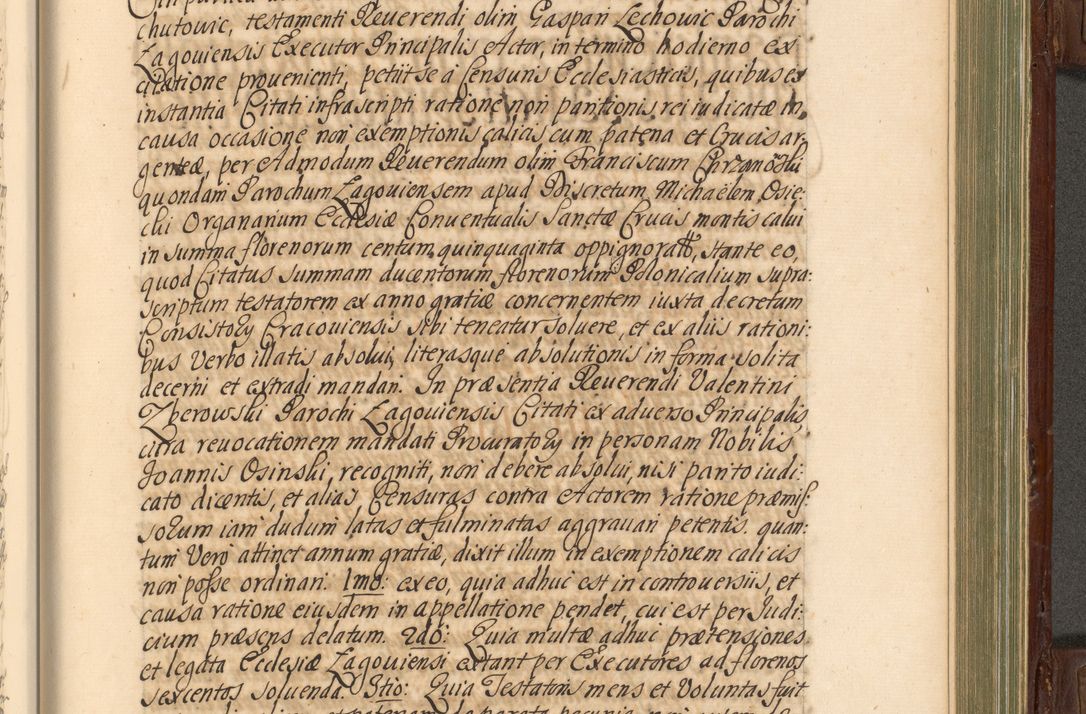 chutowic, testamenti Reuerendi olim Gaspari Lechowic Parochi
Lagouiensis Executor Principalis Actor, in termino hodierno ex
citatione prouenienti, petijt se à Censuris Ecclesiasticis, quibus ex
instantia Citati infrascripti ratione non paritionis rei iudicatæ in
causa occasione non exemptionis calicis cum patena et Crucis ar-
genteæ, per Admodum Reuerendum olim Franciscum
quondam Parochum Lagouiensem apud Discretum Michaëlem Osie-
cki Organarium Ecclesiæ Conuentualis Sanctæ Crucis montis calui
in summa florenorum centum quinquaginta oppignorat, stante eo,
quod Citatus summam ducentorum florenorum Polonicalium supra-
scriptum testatorem ex anno gratiæ concernentem iuxta decretum
Consistorij Cracouiensis sibi teneatur soluere, et ex alijs rationi-
bus Verbo illatis absolui, literasque absolutionis in forma solita
decerni et extradi mandari. In præsentia Reuerendi Valentini
Zberowski Parochi Lagouiensis Citati ex aduerso Principalis,
citra reuocationem mandati Procuratorij in personam Nobilis
Joannis Osinski, recogniti, non debere absolui, nisi parito iudi-
cato dicentis, et alias Censuras contra Actorem ratione præmis-
sorum iam dudum latas et fulminatas aggrauari petentis. quan-
tum Vero attinet annum gratiæ, dixit illum in exemptionem calicis
non posse ordinari. 1mo: ex eo, quia adhuc est in controuersijs, et
causa ratione eiusdem in appellatione pendet, cui est per Judi-
cium præsens delatum. 2do: Quia multæ adhuc prætensiones
et legata Ecclesiæ Lagouiensi extant per Executores ad florenos
sexcentos soluenda. 3tio: Quia Testatoris mens et Voluntas fuit